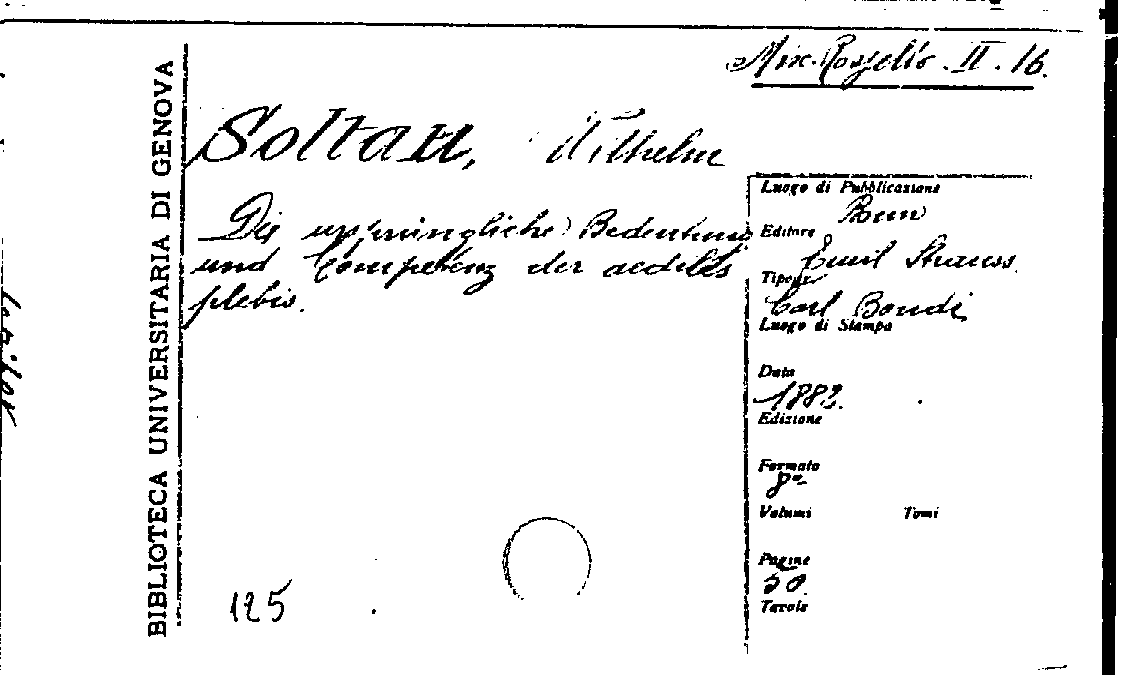 Misc. Rosselio. II. 16.
BIBLIOTECA UNIVERSITARIA DI GENOVA
Soltau, Wilhelm
Die ursprüngliche Bedeutung
und Competenz der aediles
plebis.
Luogo di Pubblicazione
Bonn
Editore
Emil Strauss.
Tipogr.
Carl Bondi
Luogo di Stampa
Data
1882.
Edizione
Formato
8°
Volumi Tomi
Pagine
50.
Tavole
125